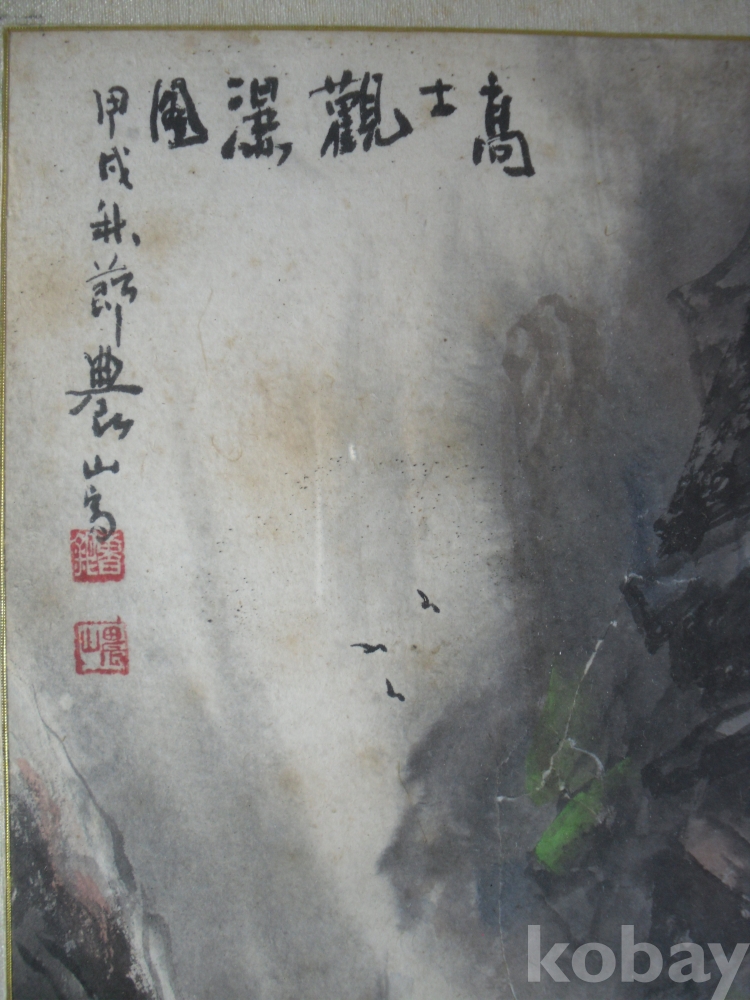 高士觀瀑圖
甲戌秋節農山寫
農山
kobay